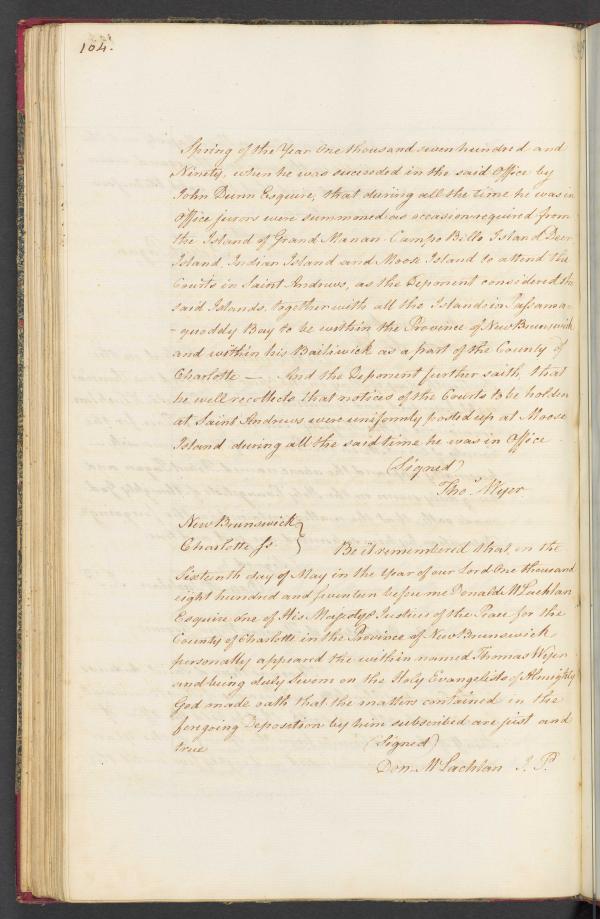 104.
Spring of the Year One thousand seven hundred and
Ninety, when he was succeeded in the said Office by
John Dunn Esquire, that during all the time he was in
Office jurors were summoned as occasion required from
the Island of Grand Manan Campo Bello Island Deer
Island, Indian Island and Moose Island to attend the
Courts in Saint Andrews, as the Deponent considered the
said Islands, together with all the Islands in Passama-
-quoddy Bay to be within the Province of New Brunswick
and within his Bailiwick as a part of the County of
Charlotte — And the Deponent further saith, that
he well recollects that notices of the Courts to be holden
at Saint Andrews were uniformly posted up at Moose
Island during all the said time he was in Office
(Signed)
Thos. Wyer
New Brunswick }
Charlotte Ss. } Be it remembered that on the
Sixteenth day of May in the Year of our Lord One thousand
eight hundred and seventeen before me Donald McLachlan
Esquire one of His Majestys Justices of the Peace for the
County of Charlotte in the Province of New Brunswick
personally appeared the within named Thomas Wyer
and being duly Sworn on the Holy Evangelists of Almighty
God made oath that the matters contained in the
foregoing Deposition by him subscribed are just and
true
(Signed)
Don. McLachlan J. P.